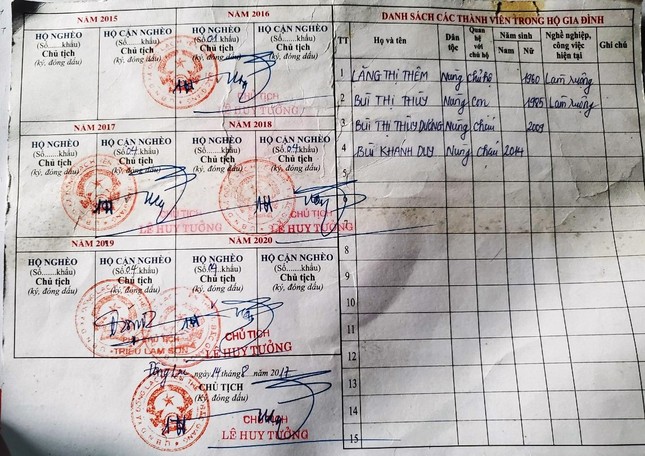 NĂM 2015 NĂM 2016
HỘ NGHÈO HỘ CẬN NGHÈO HỘ NGHÈO HỘ CẬN NGHÈO
(Số......khẩu) (Số......khẩu) (Số.04.khẩu) (Số......khẩu)
Chủ tịch Chủ tịch Chủ tịch Chủ tịch
(ký, đóng dấu) (ký, đóng dấu) (ký, đóng dấu) (ký, đóng dấu)
CHỦ TỊCH
LÊ HUY TƯỞNG
NĂM 2017 NĂM 2018
HỘ NGHÈO HỘ CẬN NGHÈO HỘ NGHÈO HỘ CẬN NGHÈO
(Số......khẩu) (Số.04.khẩu) (Số......khẩu) (Số.04.khẩu)
Chủ tịch Chủ tịch Chủ tịch Chủ tịch
(ký, đóng dấu) (ký, đóng dấu) (ký, đóng dấu) (ký, đóng dấu)
CHỦ TỊCH CHỦ TỊCH
LÊ HUY TƯỞNG LÊ HUY TƯỞNG
NĂM 2019 NĂM 2020
HỘ NGHÈO HỘ CẬN NGHÈO HỘ NGHÈO HỘ CẬN NGHÈO
(Số......khẩu) (Số.04.khẩu) (Số.04.khẩu) (Số......khẩu)
Chủ tịch Chủ tịch Chủ tịch Chủ tịch
(ký, đóng dấu) (ký, đóng dấu) (ký, đóng dấu) (ký, đóng dấu)
CHỦ TỊCH CHỦ TỊCH
TRIỆU LAM SƠN LÊ HUY TƯỞNG
ngày 14 tháng 8 năm 2017
CHỦ TỊCH
(Ký, đóng dấu)
CHỦ TỊCH
LÊ HUY TƯỞNG
DANH SÁCH CÁC THÀNH VIÊN TRONG HỘ GIA ĐÌNH
TT Họ và tên Dân tộc Quan hệ với chủ hộ Năm sinh Nghề nghiệp, công việc hiện tại Ghi chú
Nam Nữ
1 LĂNG THỊ THÊM Nùng Chủ hộ 1960 Làm ruộng
2 BÙI THỊ THÙY Nùng Con 1985 Làm ruộng
3 BÙI THỊ THÙY DƯƠNG Nùng Cháu 2009
4 BÙI KHÁNH DUY Nùng Cháu 2014
5
6
7
8
9
10
11
12
13
14
15